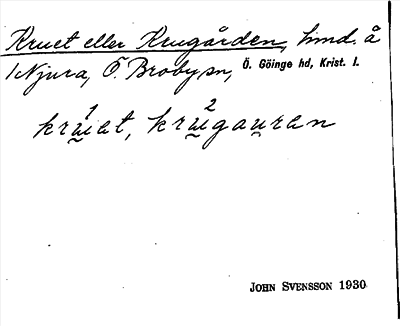 Kruet eller Krugården, hmd. å
1 Njura, Ö. Broby sn, Ö. Göinge hd, Krist. l.
krṳ́et, krṳ̀gau̯ran
JOHN SVENSSON 1930